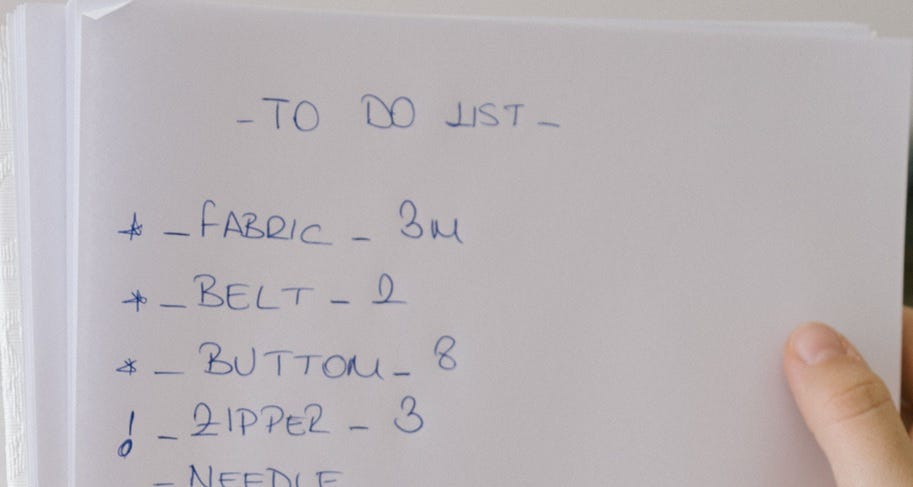 - TO DO LIST -
* - FABRIC - 3M
* - BELT - 2
* - BUTTOM - 8
! - ZIPPER - 3
- NEEDLE